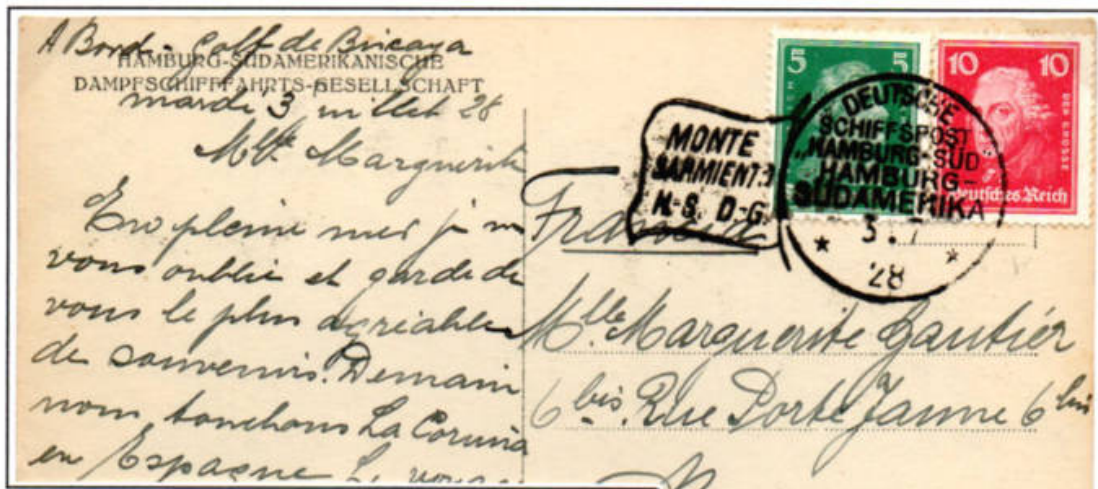 A Bord - Golf de Biscaya
HAMBURG-SÜDAMERIKANISCHE
DAMPFSCHIFFFAHRTS-GESELLSCHAFT
mardi 3 juillet 28
Mlle Marguerite
En pleine mer je ne
vous oublie et garde de
vous le plus agréable
de souvenirs. Demain
nous touchons La Coruña
en Espagne
5 5
10 10
DER GROSSE
Deutsches Reich
MONTE
SARMIENTO
H.-S. D.-G.
DEUTSCHE
SCHIFFSPOST
„HAMBURG-SÜD"
HAMBURG-
SÜDAMERIKA
3.7
.28
Mlle Marguerite Gautier
6 bis. Rue Porte Jaune 6 bis